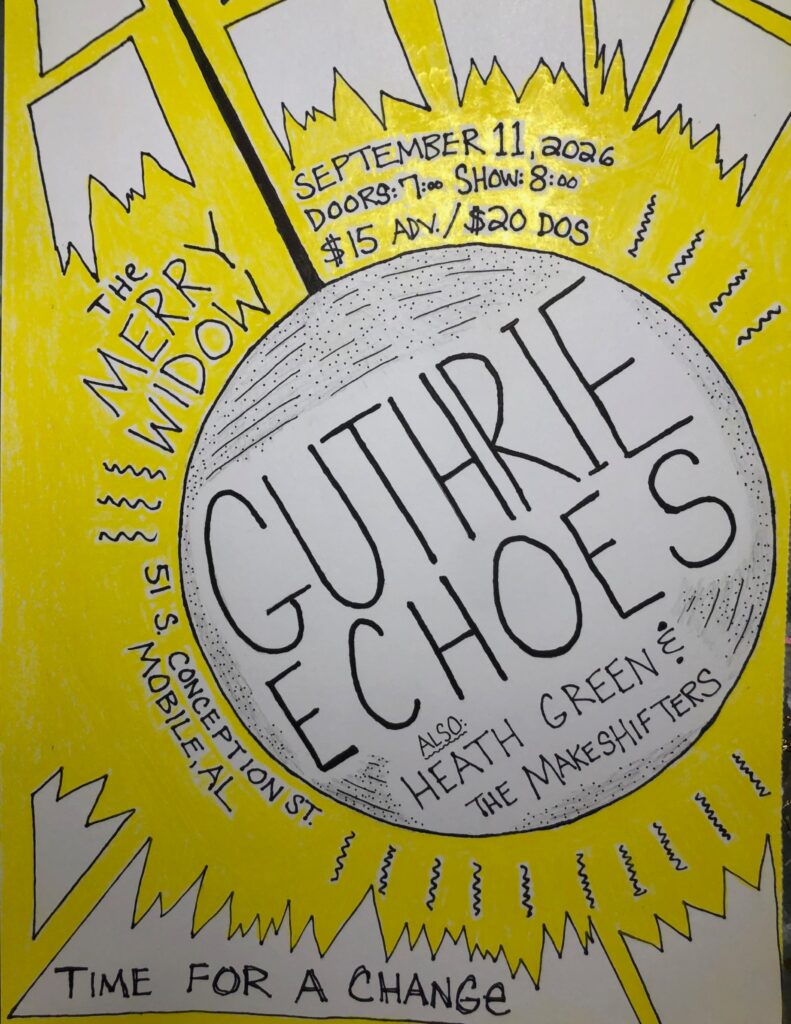 SEPTEMBER 11, 2026
DOORS: 7:00 SHOW: 8:00
$15 ADV. / $20 DOS
THE
MERRY
WIDOW
51 S. CONCEPTION ST.
MOBILE, AL
GUTHRIE
ECHOES
ALSO:
HEATH GREEN &
THE MAKESHIFTERS
TIME FOR A CHANGE